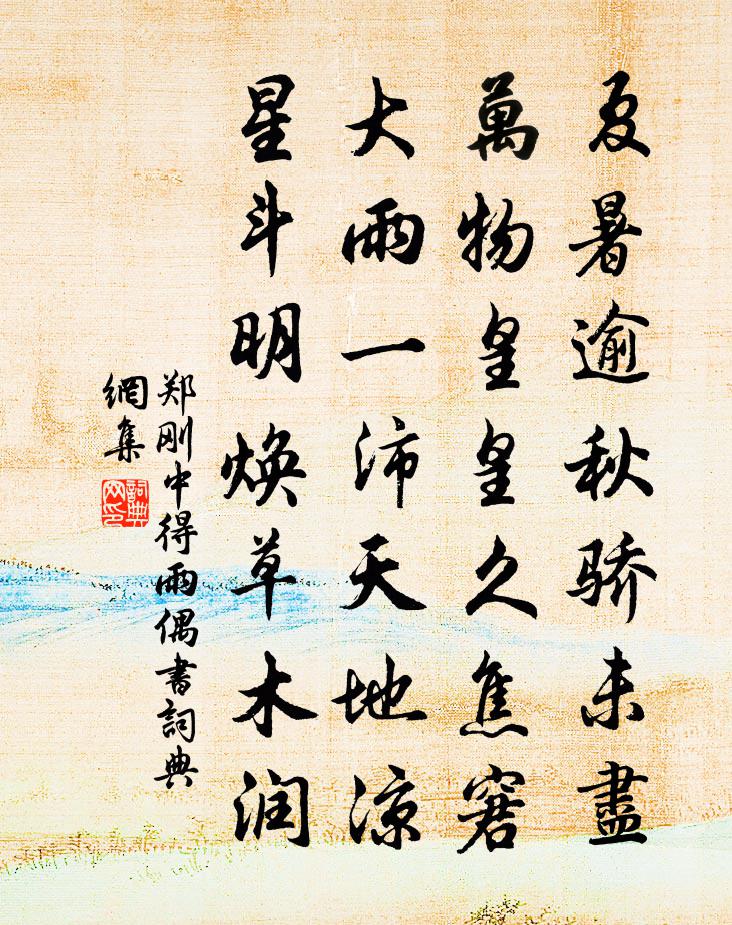 夏暑逾秋骄未盡
萬物皇皇久焦窘
大雨一沛天地凉
星斗明焕草木润
郑刚中得雨偶書詞典
網集
詞典
网印